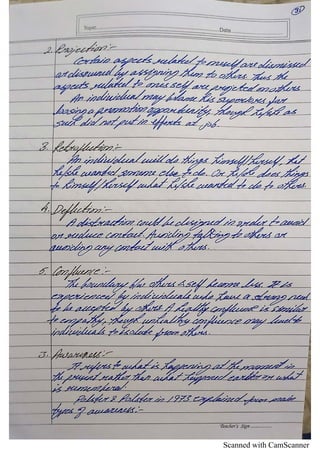 30
Topic
Date
2. Projection:-
Certain aspects related to oneself are dismissed
or disowned by assigning them to others. Thus the
aspects related to ones self are projected on others.
An individual may blame his superiors for
losing a promotion opportunity, though he/she as
such did not put in efforts at job.
3. Retroflection:-
An individual will do things himself/herself that
he/she wanted someone else to do. Or he/she does things
to himself/herself what he/she wanted to do to others.
4. Deflection:-
A distraction could be designed in order to avoid
or reduce contact. Avoiding talking to others or
avoiding any contact with others.
5. Confluence:-
The boundary b/w others & self become less. It is
experienced by individuals who have a strong need
to be accepted by others. Healthy confluence is similar
to empathy, though unhealthy confluence may lead to
individuals to isolate from others.
3. Awareness:-
It refers to what is happening at the moment in
the present rather than what happened earlier or what
is remembered.
Polster & Polster in 1973 explained four main
types of awareness:-
Teacher's Sign
Scanned with CamScanner